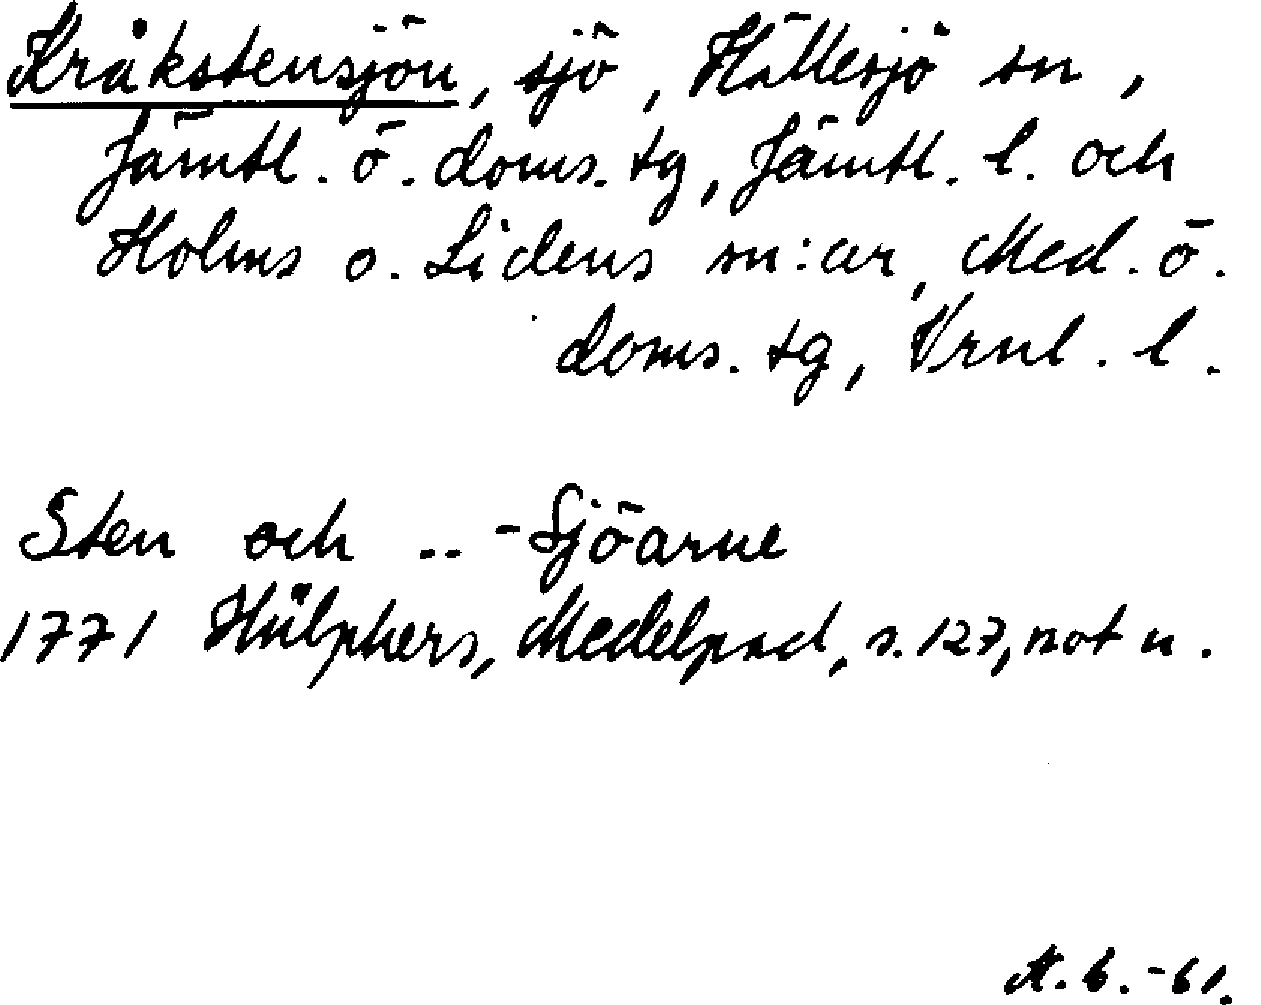 Kråkstensjön, sjö, Hällesjö sn,
Jämtl. ö. doms. tg, Jämtl. l. och
Holms o. Lidens sn:ar, Med. ö.
doms. tg, Vrnl. l.
Sten och .. -Sjöarne
1771 Hülphers, Medelpad, s. 127, not u.
A.b. -61.